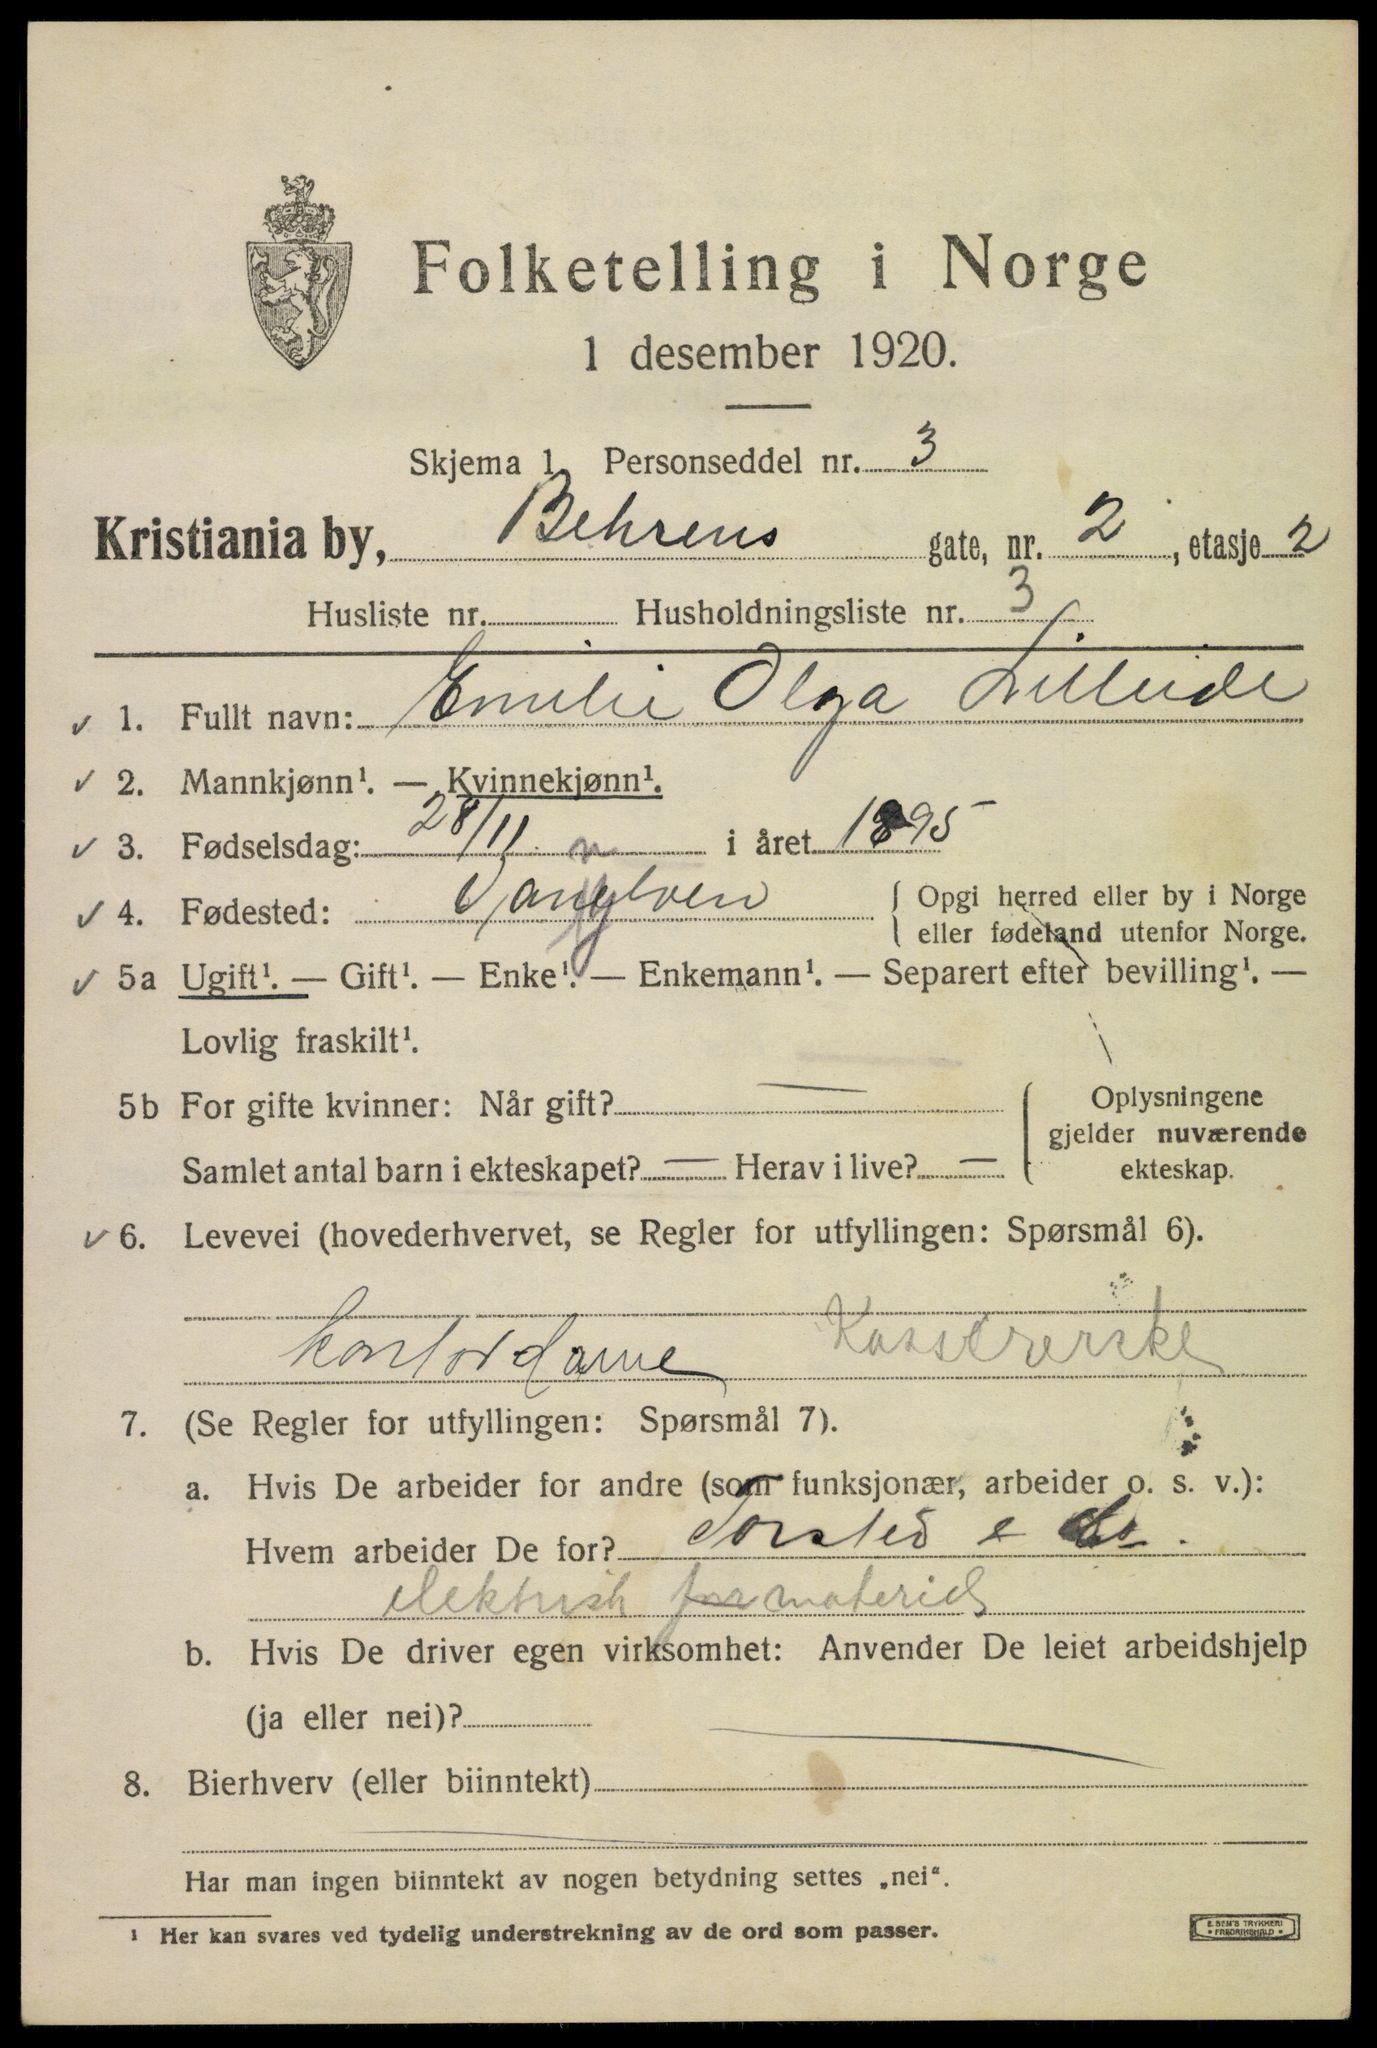 Folketelling i Norge
1 desember 1920.
Skjema 1 Personseddel nr. 3
Kristiania by, Behrens gate, nr. 2, etasje 2
Husliste nr. Husholdningsliste nr. 3
✓ 1. Fullt navn: Emilie Olga Lilleide
✓ 2. Mannkjønn¹. — Kvinnekjønn¹.
✓ 3. Fødselsdag: 28/11 i året 1895
✓ 4. Fødested: { Opgi herred eller by i Norge
eller fødeland utenfor Norge.
✓ 5a Ugift¹. — Gift¹. — Enke¹. — Enkemann¹. — Separert efter bevilling¹. —
Lovlig fraskilt¹.
5b For gifte kvinner: Når gift? —
Samlet antal barn i ekteskapet? — Herav i live? —
{ Oplysningene
gjelder nuværende
ekteskap.
✓ 6. Levevei (hovederhvervet, se Regler for utfyllingen: Spørsmål 6).
kontordame Kassererske
7. (Se Regler for utfyllingen: Spørsmål 7).
a. Hvis De arbeider for andre (som funksjonær, arbeider o. s. v.):
Hvem arbeider De for? & Co.
elektrisk materiel
b. Hvis De driver egen virksomhet: Anvender De leiet arbeidshjelp
(ja eller nei)? —
8. Bierhverv (eller biinntekt)
—
Har man ingen biinntekt av nogen betydning settes „nei“.
¹ Her kan svares ved tydelig understrekning av de ord som passer.
E. SEM'S TRYKKERI
• FREDRIKSHALD •